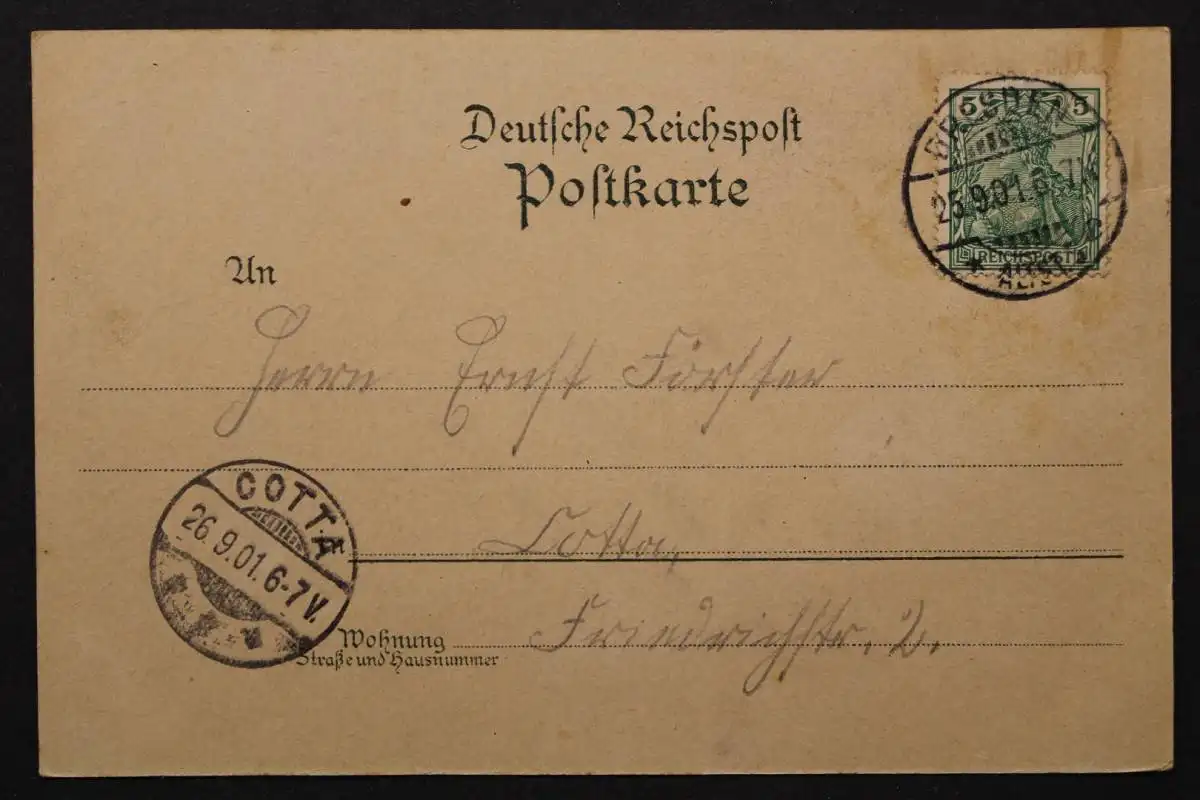 Deutsche Reichspost
Postkarte
5 5
REICHSPOST
DRESDEN
25.9.01. 6-7N
* ALTST.
c
An
Herrn Ernst Förster
Cotta,
COTTA
26.9.01. 6-7V.
Wohnung
Straße und Hausnummer
Friedrichstr. 2.